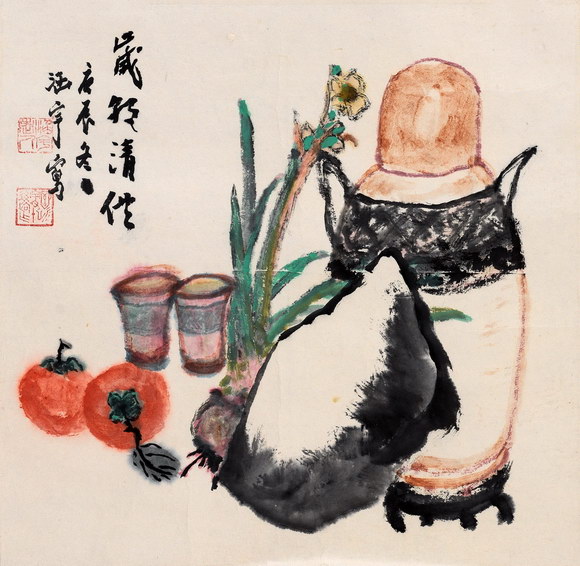 歲朝清供
庚辰冬
涵宇寫